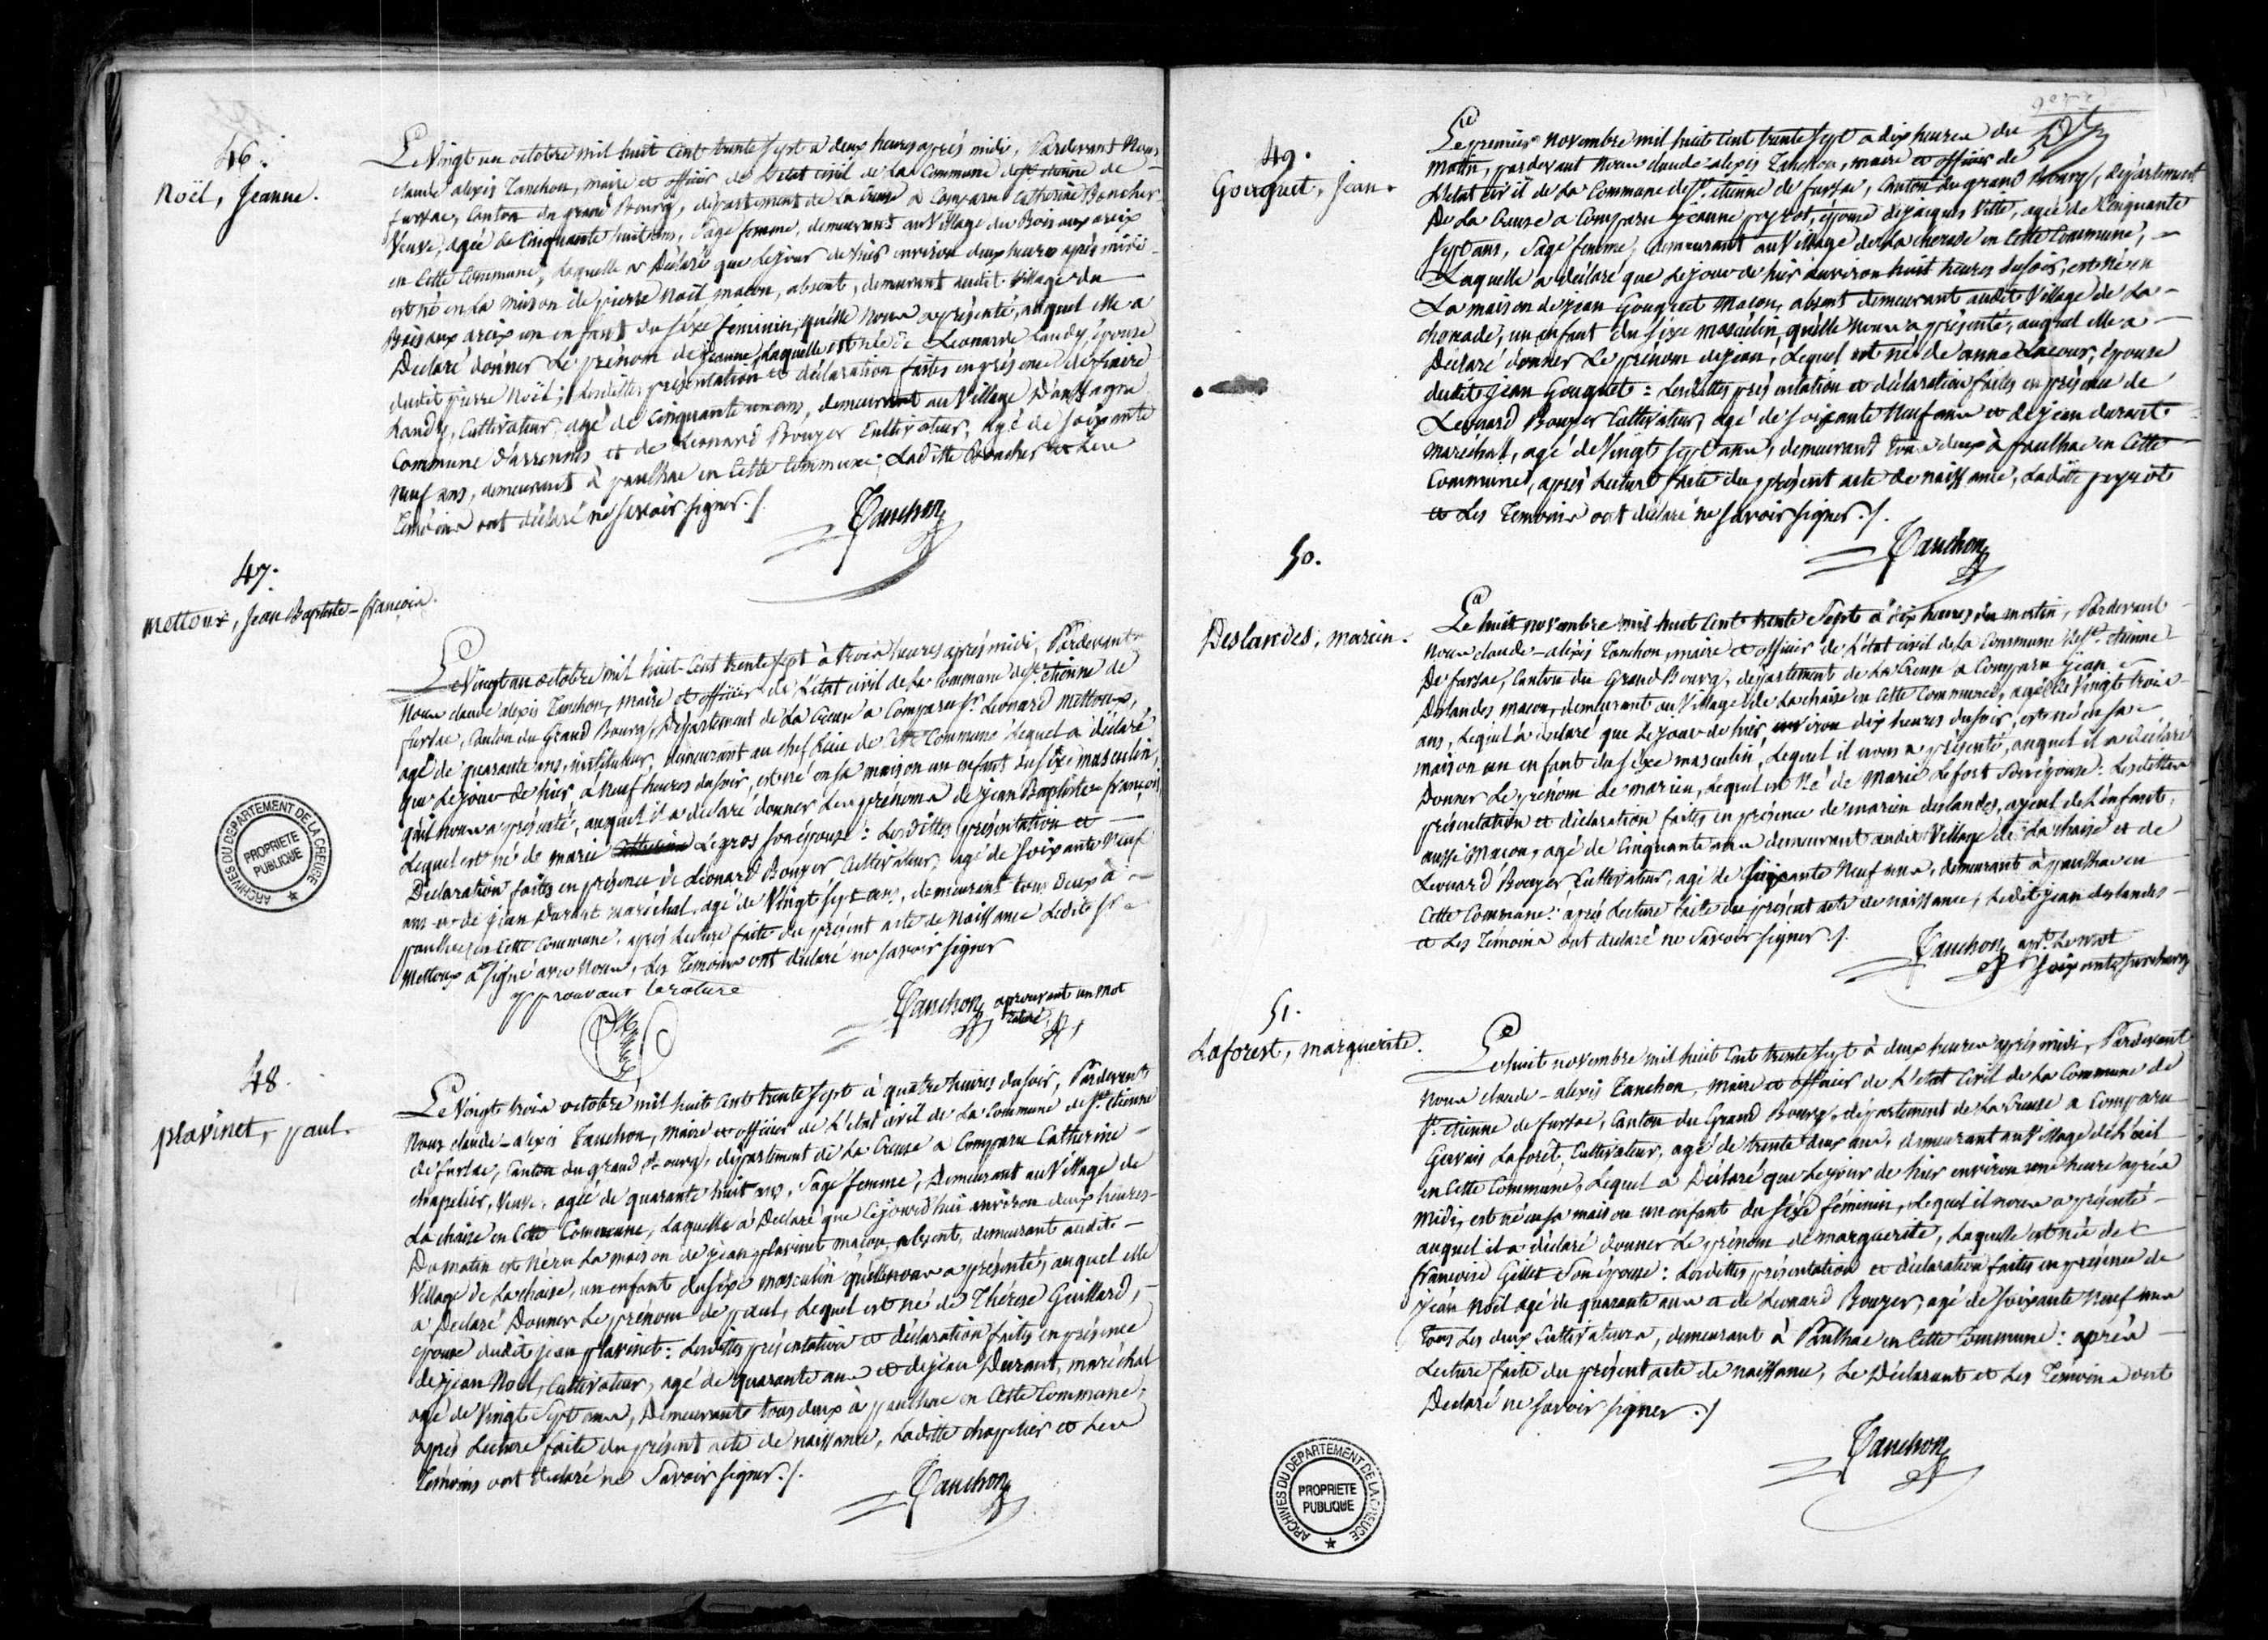 46.
Noël, Jeanne.
Le Vingt un octobre mil huit cent trente sept a deux heures après midi, Pardevant Nous
claude alexis Tanchon, maire et officier de L'etat civil de La Commune de St. etienne de
fursac, Canton du grand Bourg, département de La Creuse a Comparu Catherine Boucher
Veuve, agée de Cinquante huit ans, Sage femme, demeurant au Village du Bois aux arcix
en Cette Commune, Laquelle a Déclaré que Le jour de hier environ deux heures après midi
est né en La maison de pierre Noël, macon, absent, demeurant audit Village du
Bois aux arcix un enfant du séxe feminin, qu'elle Nous a présenté, auquel elle a
Déclaré donner Le prénom de jeanne, Laquelle est née de Leonarde Landy, épouse
dudit pierre Noël; Lesdittes présentation et déclaration faites en présence de
Landy, Cultivateur, agé de Cinquante un ans, demeurant au Village
Commune d'arrennes et de Leonard Bouyer Cultivateur, agé de soixante
neuf ans, demeurant à paulhac en Cette Commune; Laditte Boucher et Les
Temoins ont déclaré ne savoir signer./.
Tanchon
47.
mettoux, Jean Baptiste-françois.
Le Vingt un octobre mil huit Cent trente sept à trois heures après midi, Pardevant
Nous claude alexis Tanchon, maire et officier de L'état civil de La Commune de St. etienne de
fursac, Canton du Grand Bourg, Département de La Creuse a Comparu Sr. Leonard Mettoux,
agé de quarante ans, instituteur, demeurant au chef Lieu de Cette Commune Lequel a déclaré
que Le jour de hier, à Neuf heures du soir, est né en sa maison un enfant du séxe masculin,
qu'il nous a présenté, auquel il a déclaré donner Les prénoms de jean Baptiste françois,
Lequel est né de marie Legros son épouse: Lesdittes présentation et
Déclaration faites en présence de Léonard Bouyer, Cultivateur, agé de soixante Neuf
ans et de jean Durant maréchal, agé de Vingt sept ans, demeurant tous deux à
paulhac en Cette Commune, après Lecture faite du présent acte de Naissance Ledit Sr.
Mettoux a signé avec Nous, Les Temoins ont déclaré ne savoir signer
approuvant la rature
Tanchon approuvant un mot
rature
48.
plavinet, paul.
Le Vingt trois octobre mil huit cent trente sept à quatre heures du soir, Pardevant
Nous claude-alexis Tanchon, maire et officier de L'état civil de La Commune de St. etienne
de fursac, Canton du grand Bourg, département de La Creuse a Comparu Catherine
chapelier, Veuve, agée de quarante huit ans, Sage femme, Demeurant au Village de
La chaise en Cette Commune, Laquelle a Déclaré que Cejourd'hui environ deux heures
Du matin est Né en La maison de jean plavinet macon, absent, demeurant audit
Village de La chaise, un enfant du séxe masculin qu'elle nous a présenté, auquel elle
a Declaré Donner Le prénom de paul, Lequel est né de Thérèse Guillard,
epouse dudit jean plavinet: Lesdittes présentation et déclaration faites en présence
de jean Noël, Cultivateur, agé de quarante ans et de jean Durant, maréchal
agé de Vingt Sept ans, Demeurants tous deux à paulhac en Cette Commune,
après Lecture faite du présent acte de naissance, Laditte chapelier et Les
Témoins ont déclaré ne Savoir signer./.
Tanchon
ARCHIVES DU DEPARTEMENT DE LA CREUSE
PROPRIETE
PUBLIQUE
49.
Gouguet, Jean.
Le premier novembre mil huit cent trente sept a dix heures du
Matin, pardevant Nous claude alexis Tanchon, maire et officier de
L'état civil de La Commune de St. etienne de fursac, Canton du grand Bourg, Département
De La Creuse a Comparu jeanne peyrot, épouse de jacques Ville, agée de Cinquante
sept ans, Sage femme, demeurant au Village de La en Cette Commune,
Laquelle a déclaré que Le jour de hier environ huit heures du soir, est né en
La maison de jean Gouguet Macon, absent demeurant audit Village de La
un enfant du séxe masculin, qu'elle Nous a présenté, auquel elle a
Declaré donner Le prénom de jean, Lequel est né de anne Lacour, épouse
dudit jean Gouguet: Lesdittes présentation et déclaration faites en présence de
Leonard Bouyer Cultivateur, agé de soixante Neuf ans et de jean durant
maréchal, agé de Vingt sept ans, demeurant tous deux à paulhac en Cette
Commune, après Lecture faite du présent acte de naissance, Laditte peyrot
et Les Temoins ont déclaré ne savoir signer./.
Tanchon
50.
Deslandes, marien.
Le huit novembre mil huit Cent trente Sept à dix heures du matin, Pardevant
Nous claude-alexis Tanchon, maire et officier de L'état civil de La Commune de St. etienne
De fursac, Canton du Grand Bourg, département de La Creuse a Comparu jean
Deslandes, macon, demeurant au Village de La chaise en Cette Commune, agé de Vingt trois
ans, Lequel a déclaré que Le jour de hier, environ dix heures du soir, est né en sa
maison un enfant du séxe masculin, Lequel il nous a présenté, auquel il a déclaré
Donner Le prénom de marien, Lequel est Né de Marie Lefort Son épouse: Lesdittes
présentation et déclaration faites en présence de marien deslandes, ayeul de L'enfant,
aussi Macon, agé de Cinquante ans demeurant audit Village de La chaise et de
Leonard Bouyer Cultivateur, agé de soixante Neuf ans, demeurant à paulhac en
Cette Commune: après Lecture faite du présent acte de naissance, Ledit jean deslandes
et Les Témoins ont declaré ne Savoir signer./.
Tanchon apt. Le mot
soixante surchargé
51.
Laforest, marguerite.
Le huit novembre mil huit Cent trente sept à deux heures après midi, Pardevant
Nous claude-alexis Tanchon, Maire et officier de L'etat Civil de La Commune de
St. etienne de fursac, Canton du Grand Bourg, département de La Creuse a Comparu
Gervais Laforet, Cultivateur, agé de trente deux ans, demeurant au Village
en Cette Commune, Lequel a Déclaré que Le jour de hier environ une heure après
Midi, est né en sa maison un enfant du séxe féminin, Lequel il nous a présenté
auquel il a déclaré donner Le prénom de marguerite, Laquelle est née de
françoise Gillet Son épouse: Lesdittes présentation et déclaration faites en présence de
jean Noël agé de quarante ans et de Leonard Bouyer, agé de soixante Neuf ans
Tous Les deux Cultivateurs, demeurant à Paulhac en Cette Commune: après
Lecture faite du présent acte de naissance, Le Déclarant et Les Témoins ont
Declaré ne savoir signer./.
Tanchon
ARCHIVES DU DEPARTEMENT DE LA CREUSE
PROPRIETE
PUBLIQUE